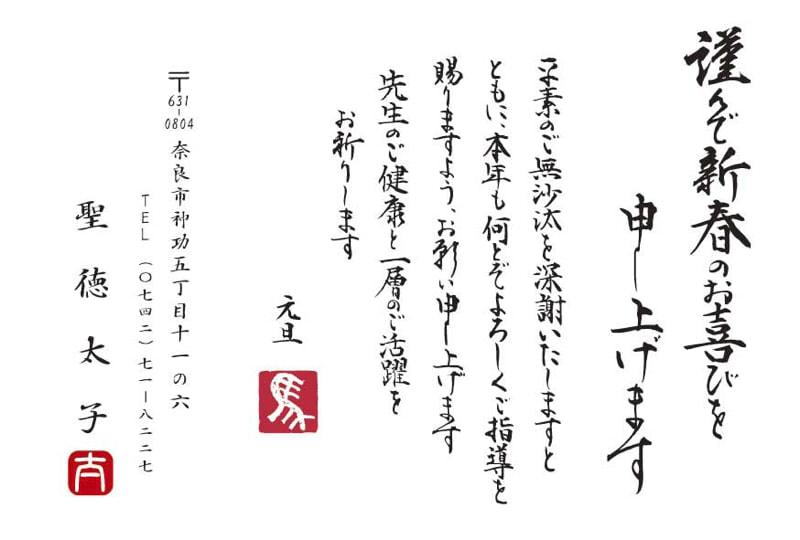 謹んで新春のお喜びを
申し上げます
平素のご無沙汰を深謝いたしますと
ともに、本年も何とぞよろしくご指導を
賜りますよう、お願い申し上げます
先生のご健康と一層のご活躍を
お祈りします
元旦
馬
〒631-0804 奈良市神功五丁目十一の六
TEL (〇七四二)七一ー八二二七
聖徳太子